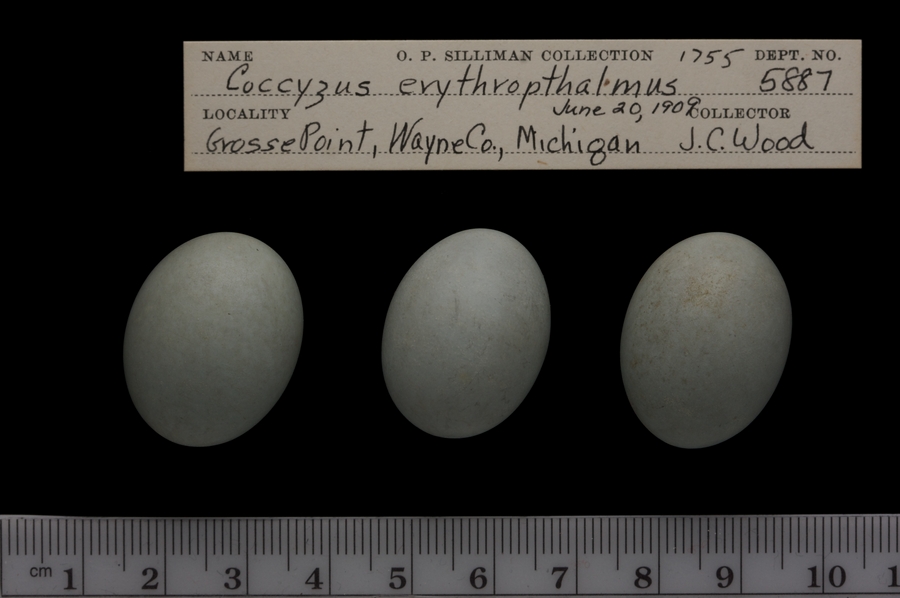 NAME O. P. SILLIMAN COLLECTION 1755 DEPT. NO.
Coccyzus erythropthalmus 5887
LOCALITY June 20, 1909 COLLECTOR
Grosse Point, Wayne Co., Michigan J.C. Wood
cm 1 2 3 4 5 6 7 8 9 10 1